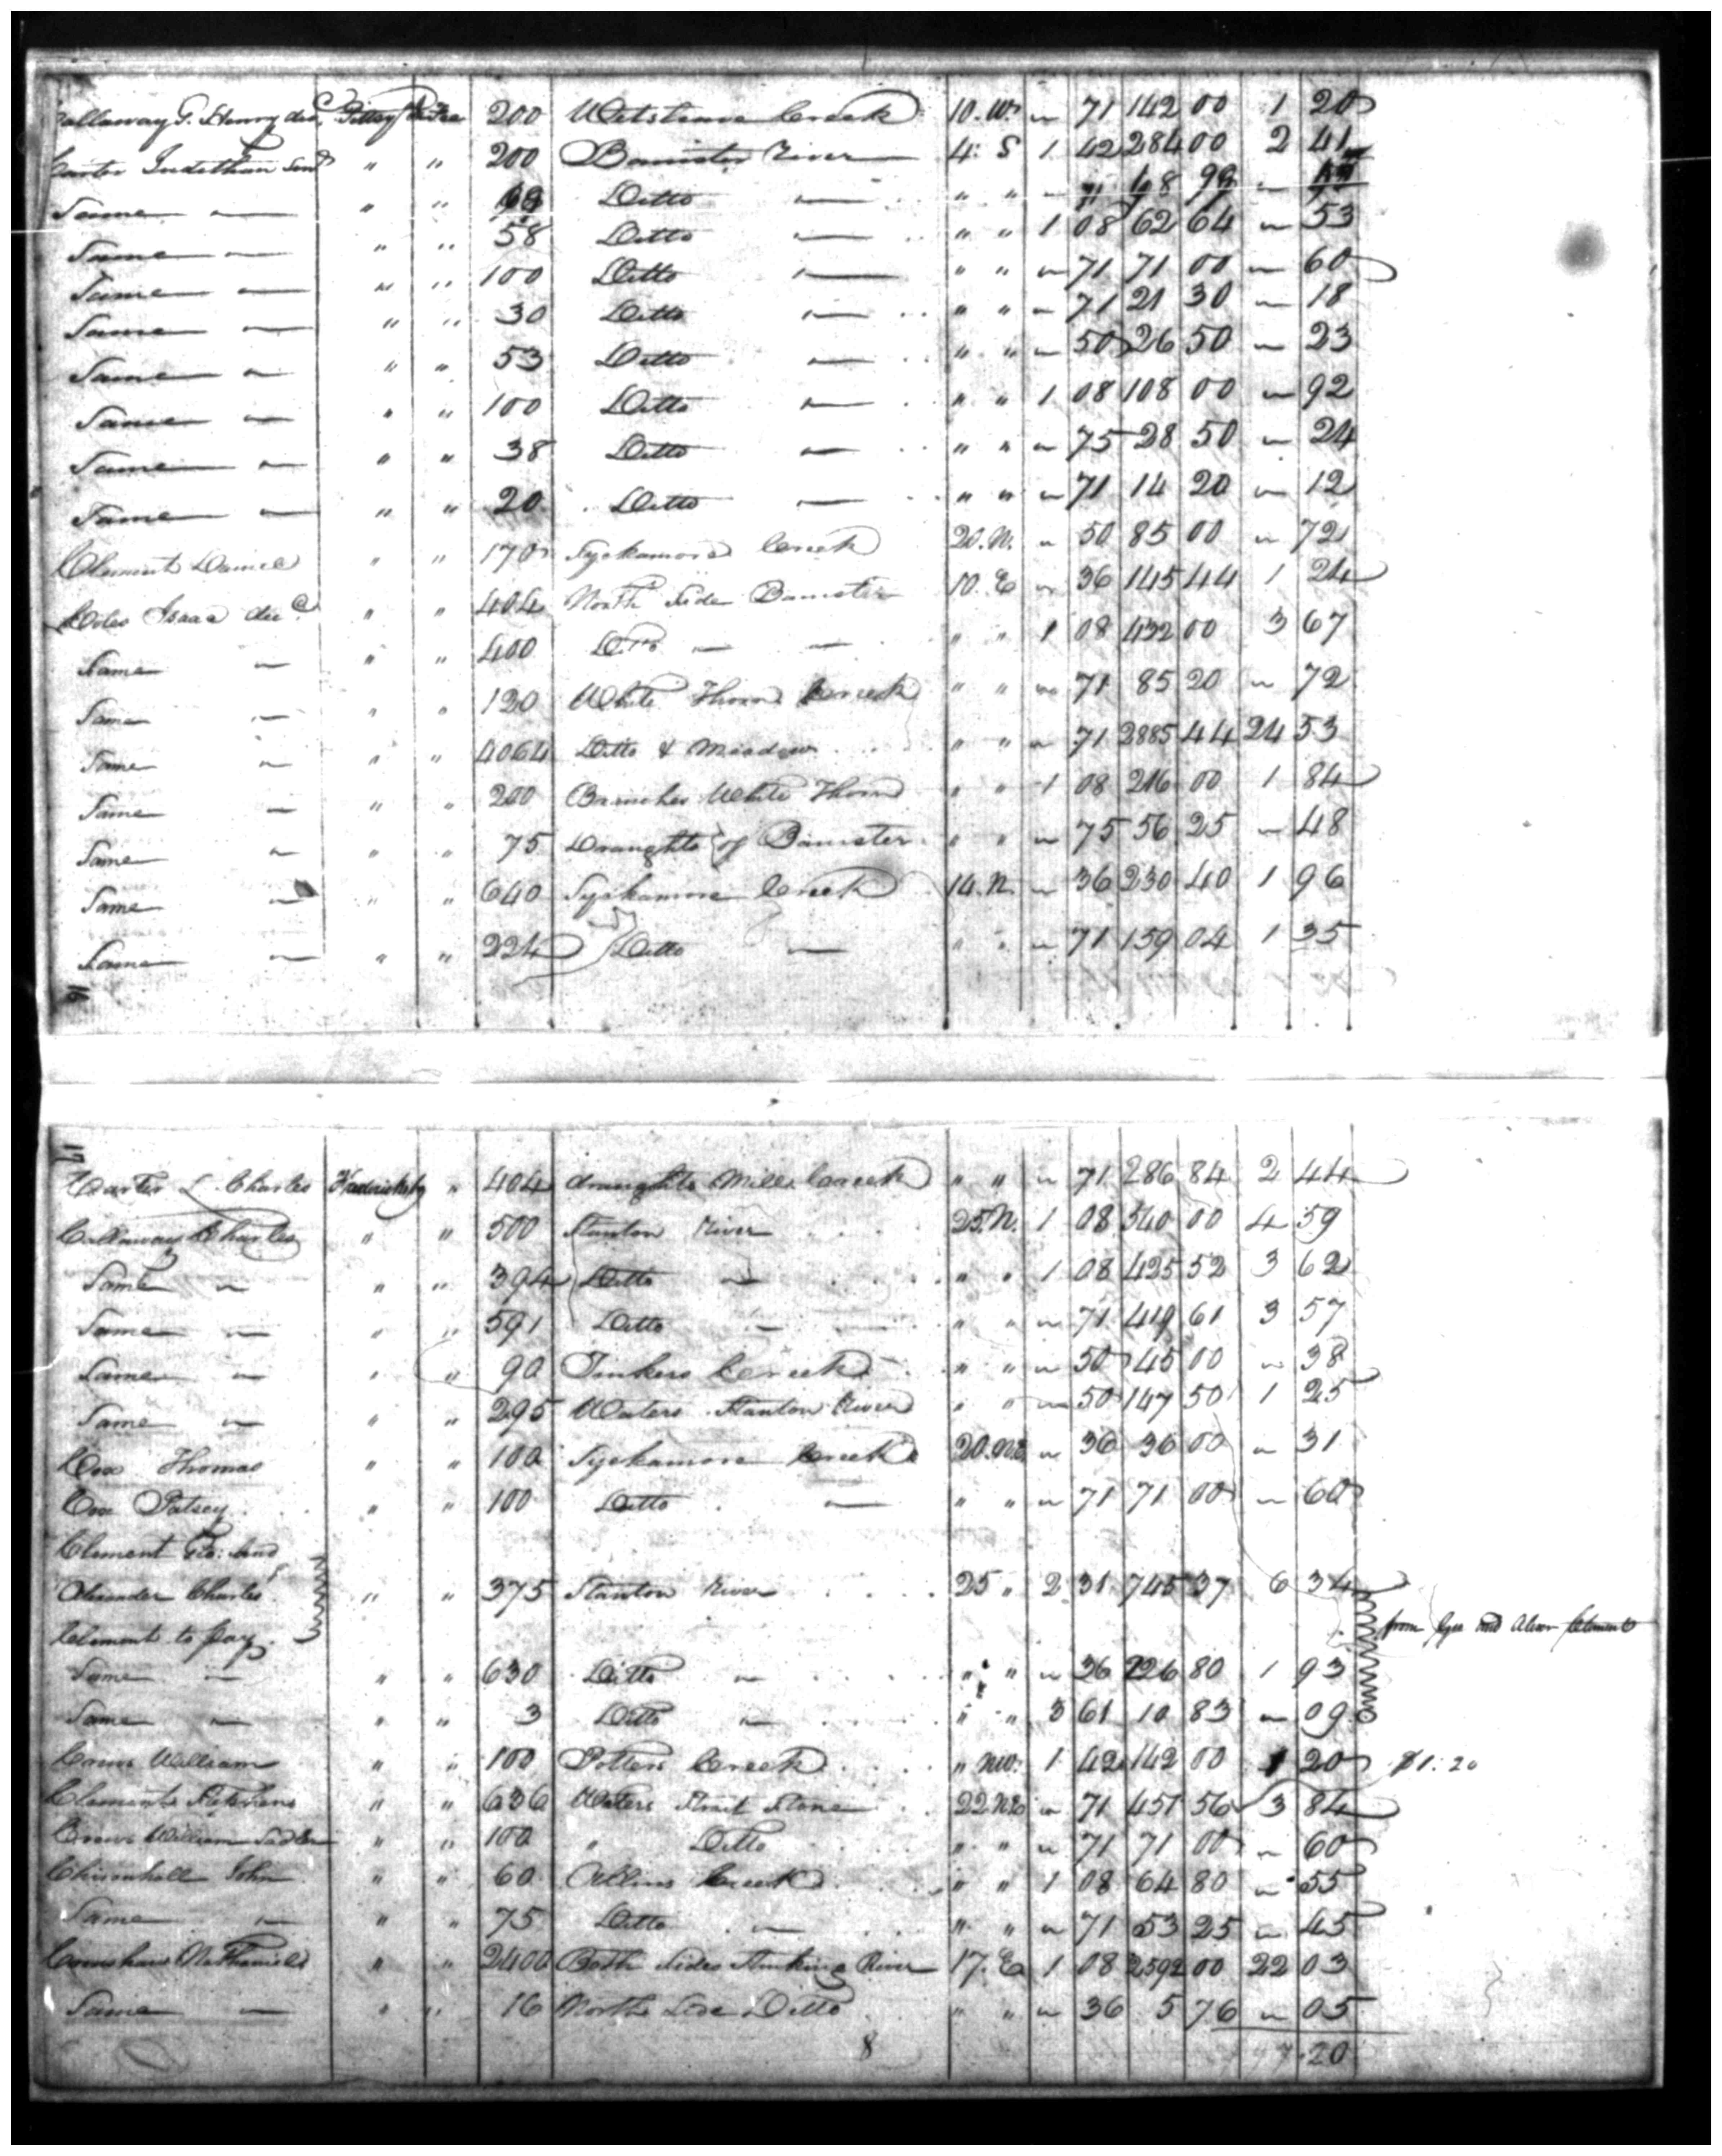 Callaway G. Henry decd Pittsy 200 Whitstone Creek 10. W. " 71 142 00 1 20
Carter Jedethan Senr " " 200 Banister River 4. S 1 42 284 00 2 41
Same " " Ditto " " " 71 48 99
Same " " 58 Ditto " " 1 08 62 64 " 53
Same " " 100 Ditto " " " 71 71 00 " 60
Same " " 30 Ditto " " " 71 21 30 " 18
Same " " 53 Ditto " " " 50 26 50 " 23
Same " " 100 Ditto " " 1 08 108 00 " 92
Same " " 38 Ditto " " " 75 28 50 " 24
Same " " 20 Ditto " " " 71 14 20 " 12
Clement Daniel " " 170 Syckamore Creek 20. N. " 50 85 00 " 72
Coles Isaac decd " " 404 North Side Banister 10. E " 36 145 44 1 24
Same " " 400 Ditto " " 1 08 432 00 3 67
Same " " 120 White Thorn Creek " " " 71 85 20 " 72
Same " " 4064 Ditto & Meadow " " " 71 2885 44 24 53
Same " " 200 Branches White Thorn " " 1 08 216 00 1 84
Same " " 75 Draughts of Banister " " " 75 56 25 " 48
Same " " 640 Syckamore Creek 14. N " 36 230 40 1 96
Same " " 224 Ditto " " " 71 159 04 1 35
16
17
Carter L. Charles Fredricksbg " 404 draughts Mill Creek " " " 71 286 84 2 44
Callaway Charles " " 500 Stanton River 25. N. 1 08 540 00 4 59
Same " " 394 Ditto " " 1 08 425 52 3 62
Same " " 591 Ditto " " " 71 419 61 3 57
Same " " 90 Tinkers Creek " " " 50 45 00 " 38
Same " " 295 Waters Stanton River " " " 50 147 50 1 25
Cox Thomas " " 100 Syckamore Creek 20. NE " 36 36 00 " 31
Cox Patsey " " 100 Ditto " " " 71 71 00 " 60
Clement Geo: and
Alexander Charles " " 375 Stanton River 25 " 2 31 745 37 6 34
Clement to pay. from Geo and Alexr Clement
Same " " 630 Ditto " " " 36 226 80 1 93
Same " " 3 Ditto " " 3 61 10 83 " 09
William " " 100 Potters Creek " NW. 1 42 142 00 1 20 $1.20
Clements Stephens " " 636 Waters Strait Stone 22 NE " 71 451 56 3 84
Crews William Sadler " " 100 " Ditto " " " 71 71 00 " 60
John " " 60 Allins Creek " " 1 08 64 80 " 55
Same " " 75 Ditto " " " 71 53 25 " 45
Crenshaw Nathaniel " " 2400 Both Sides Stinking River 17. E 1 08 2592 00 22 03
Same " " 16 North Side Ditto " " " 36 5 76 " 05
8 97.20